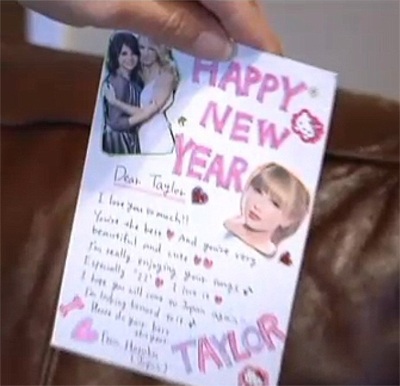 HAPPY
NEW
YEAR
Dear Taylor
I love you so much!!
You're the best And you're very
beautiful and cute
I'm really enjoying your songs
Especially "22" I love it
I hope you will come to Japan again
I'm looking forward to it
Please do your best
From
(Japan)
I
TAYLOR